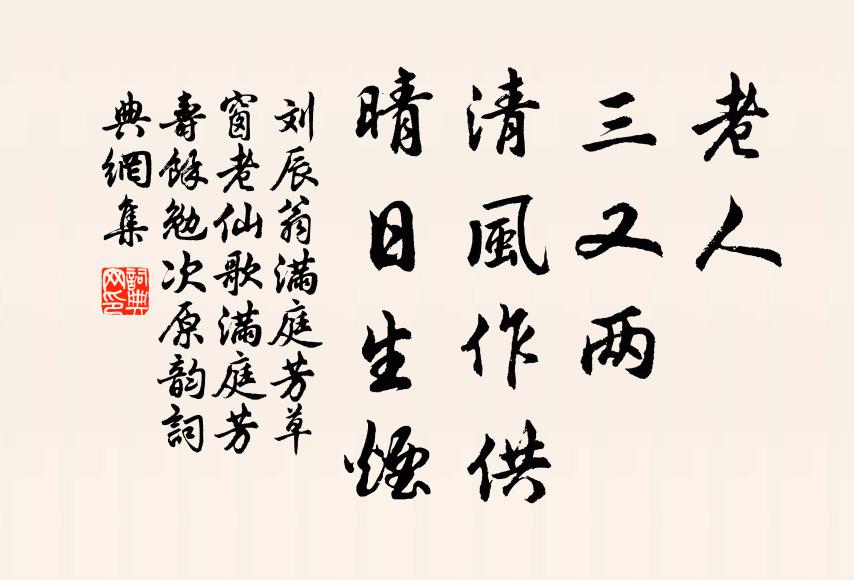 老人
三又两
清風作供
晴日生煙
刘辰翁满庭芳草
窗老仙歌满庭芳
壽餘勉次原韵詞
典網集
詞典
网印